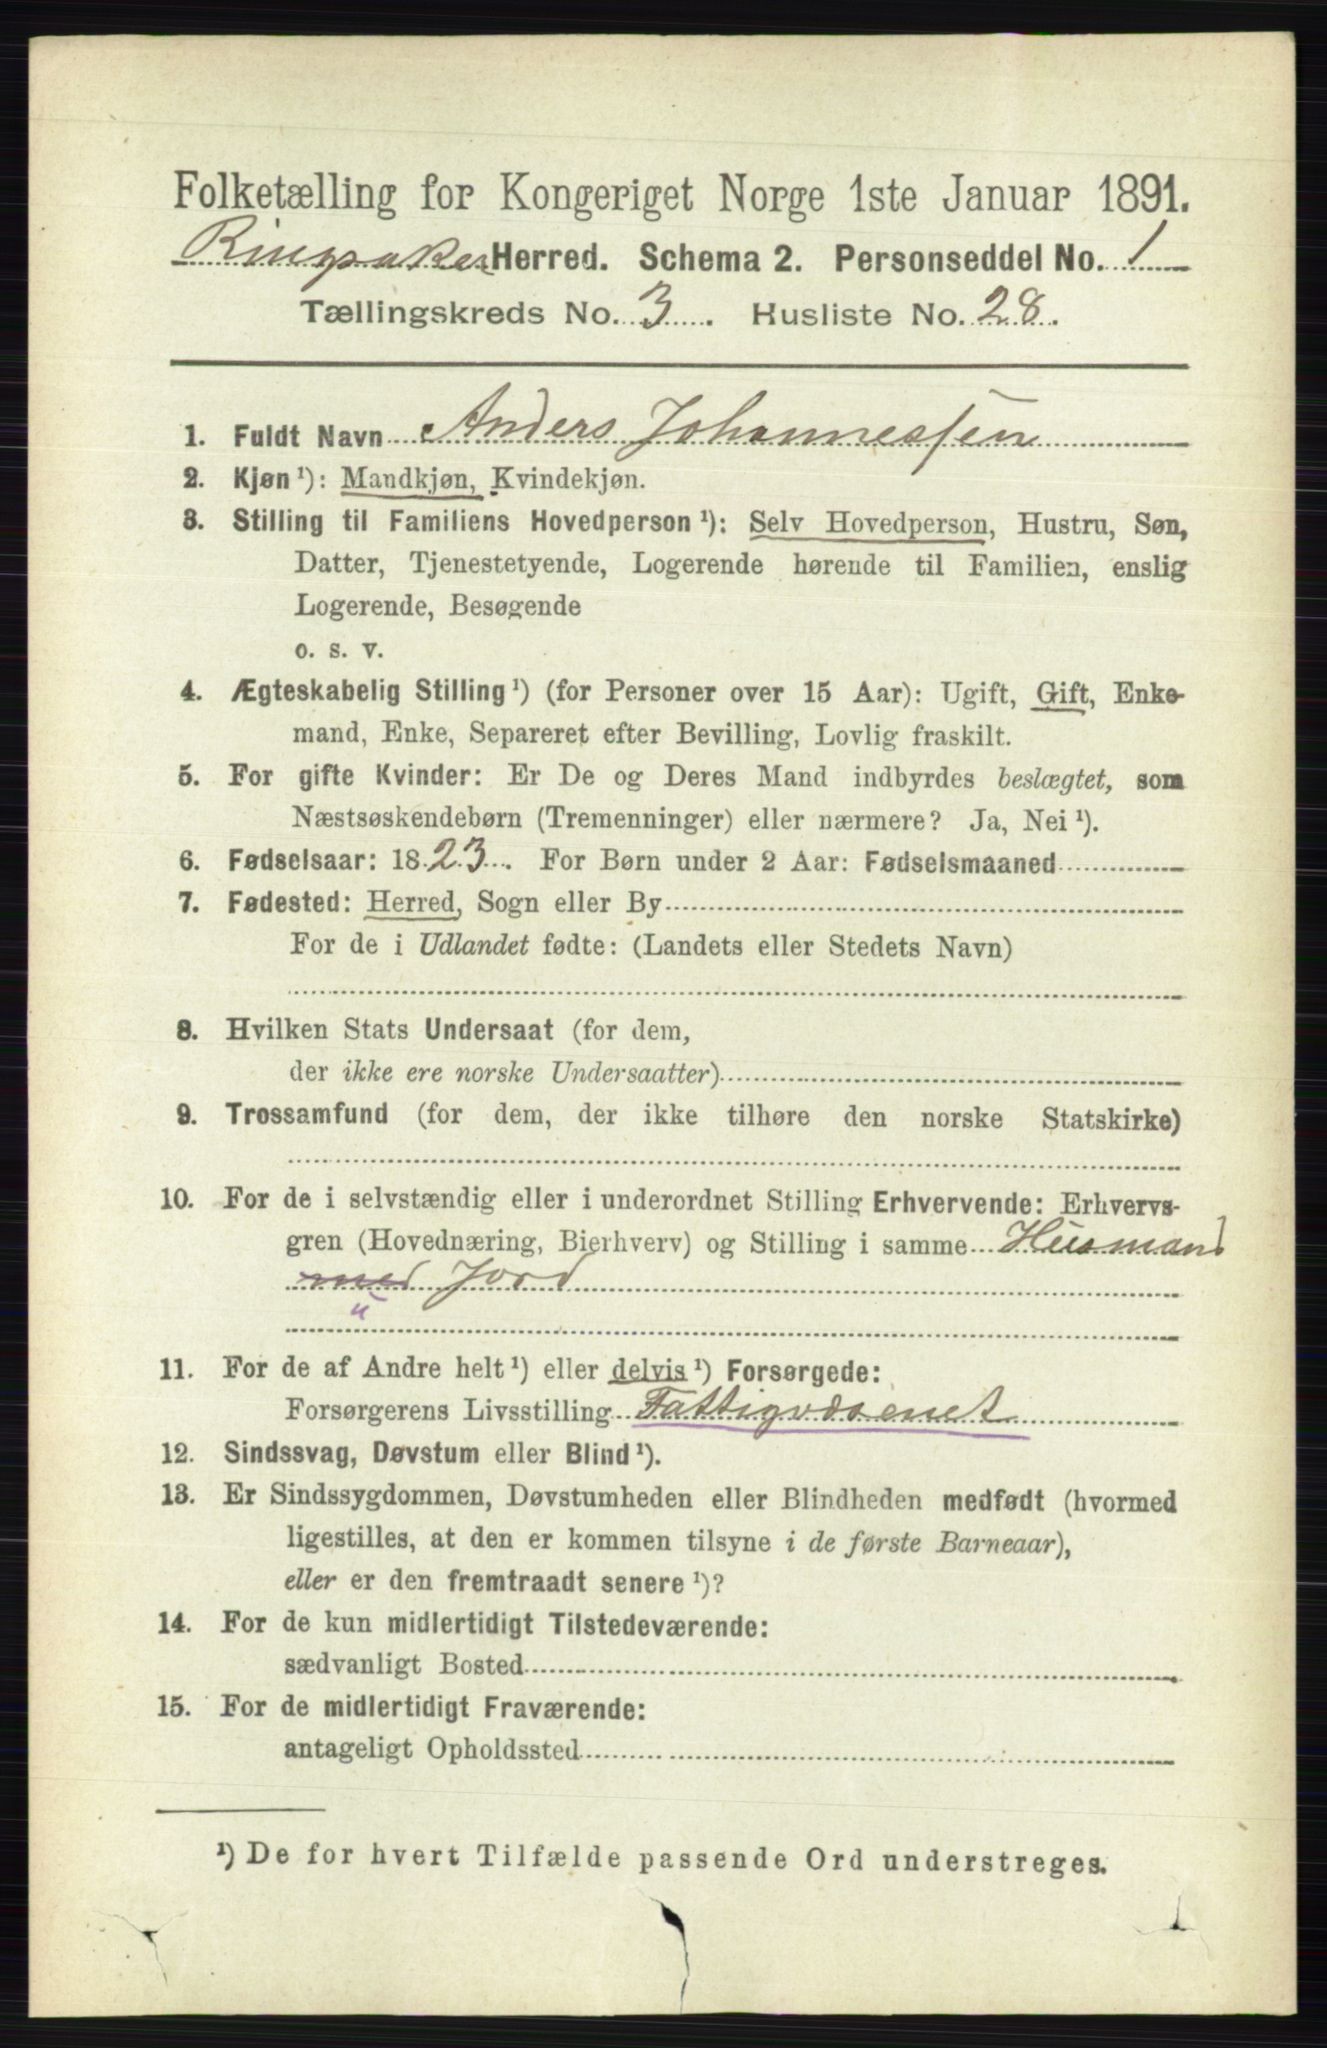 Folketælling for Kongeriget Norge 1ste Januar 1891.
Ringsaker Herred. Schema 2. Personseddel No. 1
Tællingskreds No. 3. Husliste No. 28.
1. Fuldt Navn Anders Johannessen
2. Kjøn¹): Mandkjøn, Kvindekjøn.
3. Stilling til Familiens Hovedperson¹): Selv Hovedperson, Hustru, Søn,
Datter, Tjenestetyende, Logerende hørende til Familien, enslig
Logerende, Besøgende
o. s. v.
4. Ægteskabelig Stilling¹) (for Personer over 15 Aar): Ugift, Gift, Enke-
mand, Enke, Separeret efter Bevilling, Lovlig fraskilt.
5. For gifte Kvinder: Er De og Deres Mand indbyrdes beslægtet, som
Næstsøskendebørn (Tremenninger) eller nærmere? Ja, Nei¹).
6. Fødselsaar: 1823. For Børn under 2 Aar: Fødselsmaaned
7. Fødested: Herred, Sogn eller By
For de i Udlandet fødte: (Landets eller Stedets Navn)
8. Hvilken Stats Undersaat (for dem,
der ikke ere norske Undersaatter)
9. Trossamfund (for dem, der ikke tilhøre den norske Statskirke)
10. For de i selvstændig eller i underordnet Stilling Erhvervende: Erhvervs-
gren (Hovednæring, Bierhverv) og Stilling i samme Husmand
med Jord
u
11. For de af Andre helt¹) eller delvis¹) Forsørgede:
Forsørgerens Livsstilling Fattigvæsenet
12. Sindssvag, Døvstum eller Blind¹).
13. Er Sindssygdommen, Døvstumheden eller Blindheden medfødt (hvormed
ligestilles, at den er kommen tilsyne i de første Barneaar),
eller er den fremtraadt senere¹)?
14. For de kun midlertidigt Tilstedeværende:
sædvanligt Bosted
15. For de midlertidigt Fraværende:
antageligt Opholdssted
¹) De for hvert Tilfælde passende Ord understreges.